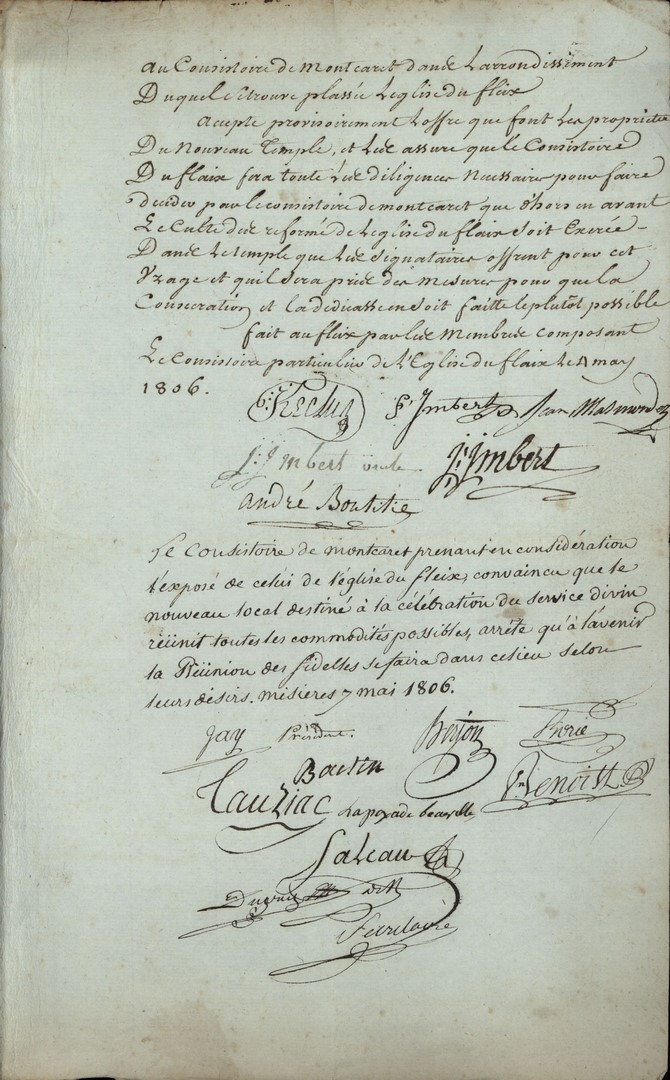 au Consistoire de montcaret dans Larrondissement
Duquel Se trouve plassée Leglise du fleix
accepte provisoirement Loffre que font Les proprietes
Du Nouveau Temple, et Les assure que le Consistoire
Du flaix fera toute Les diligences Necessaires pour faire
decider par le consistoire de montcaret que d'hors en avant
Le Culte des reformé de Leglise du flaix soit Exercé
Dans Le temple que Les signataires offrent pour cet
Usage et quil sera pris des Mesures pour que la
Consecration et la dedicasse en soit faitte le plutôt possible
fait au flaix par Les Membres composant
Le Consistoire particulier de L'Eglise du flaix Le 4 may
1806.
Reclus P. Imbert Jean Malmond
J. Imbert J. Imbert
andré Boutitie
Le Consistoire de montcaret prenant en considération
l'exposé de celui de l'église du fleix, convaincu que le
nouveau local destiné à la célébration du service divin
réünit toutes les commodités possibles, arrête qu'à l'avenir
la Réünion des fidelles se faira dans ce lieu selon
leurs désirs. mésières 7 mai 1806.
Jay Président.
Tauziac Lapoyade
Benoist